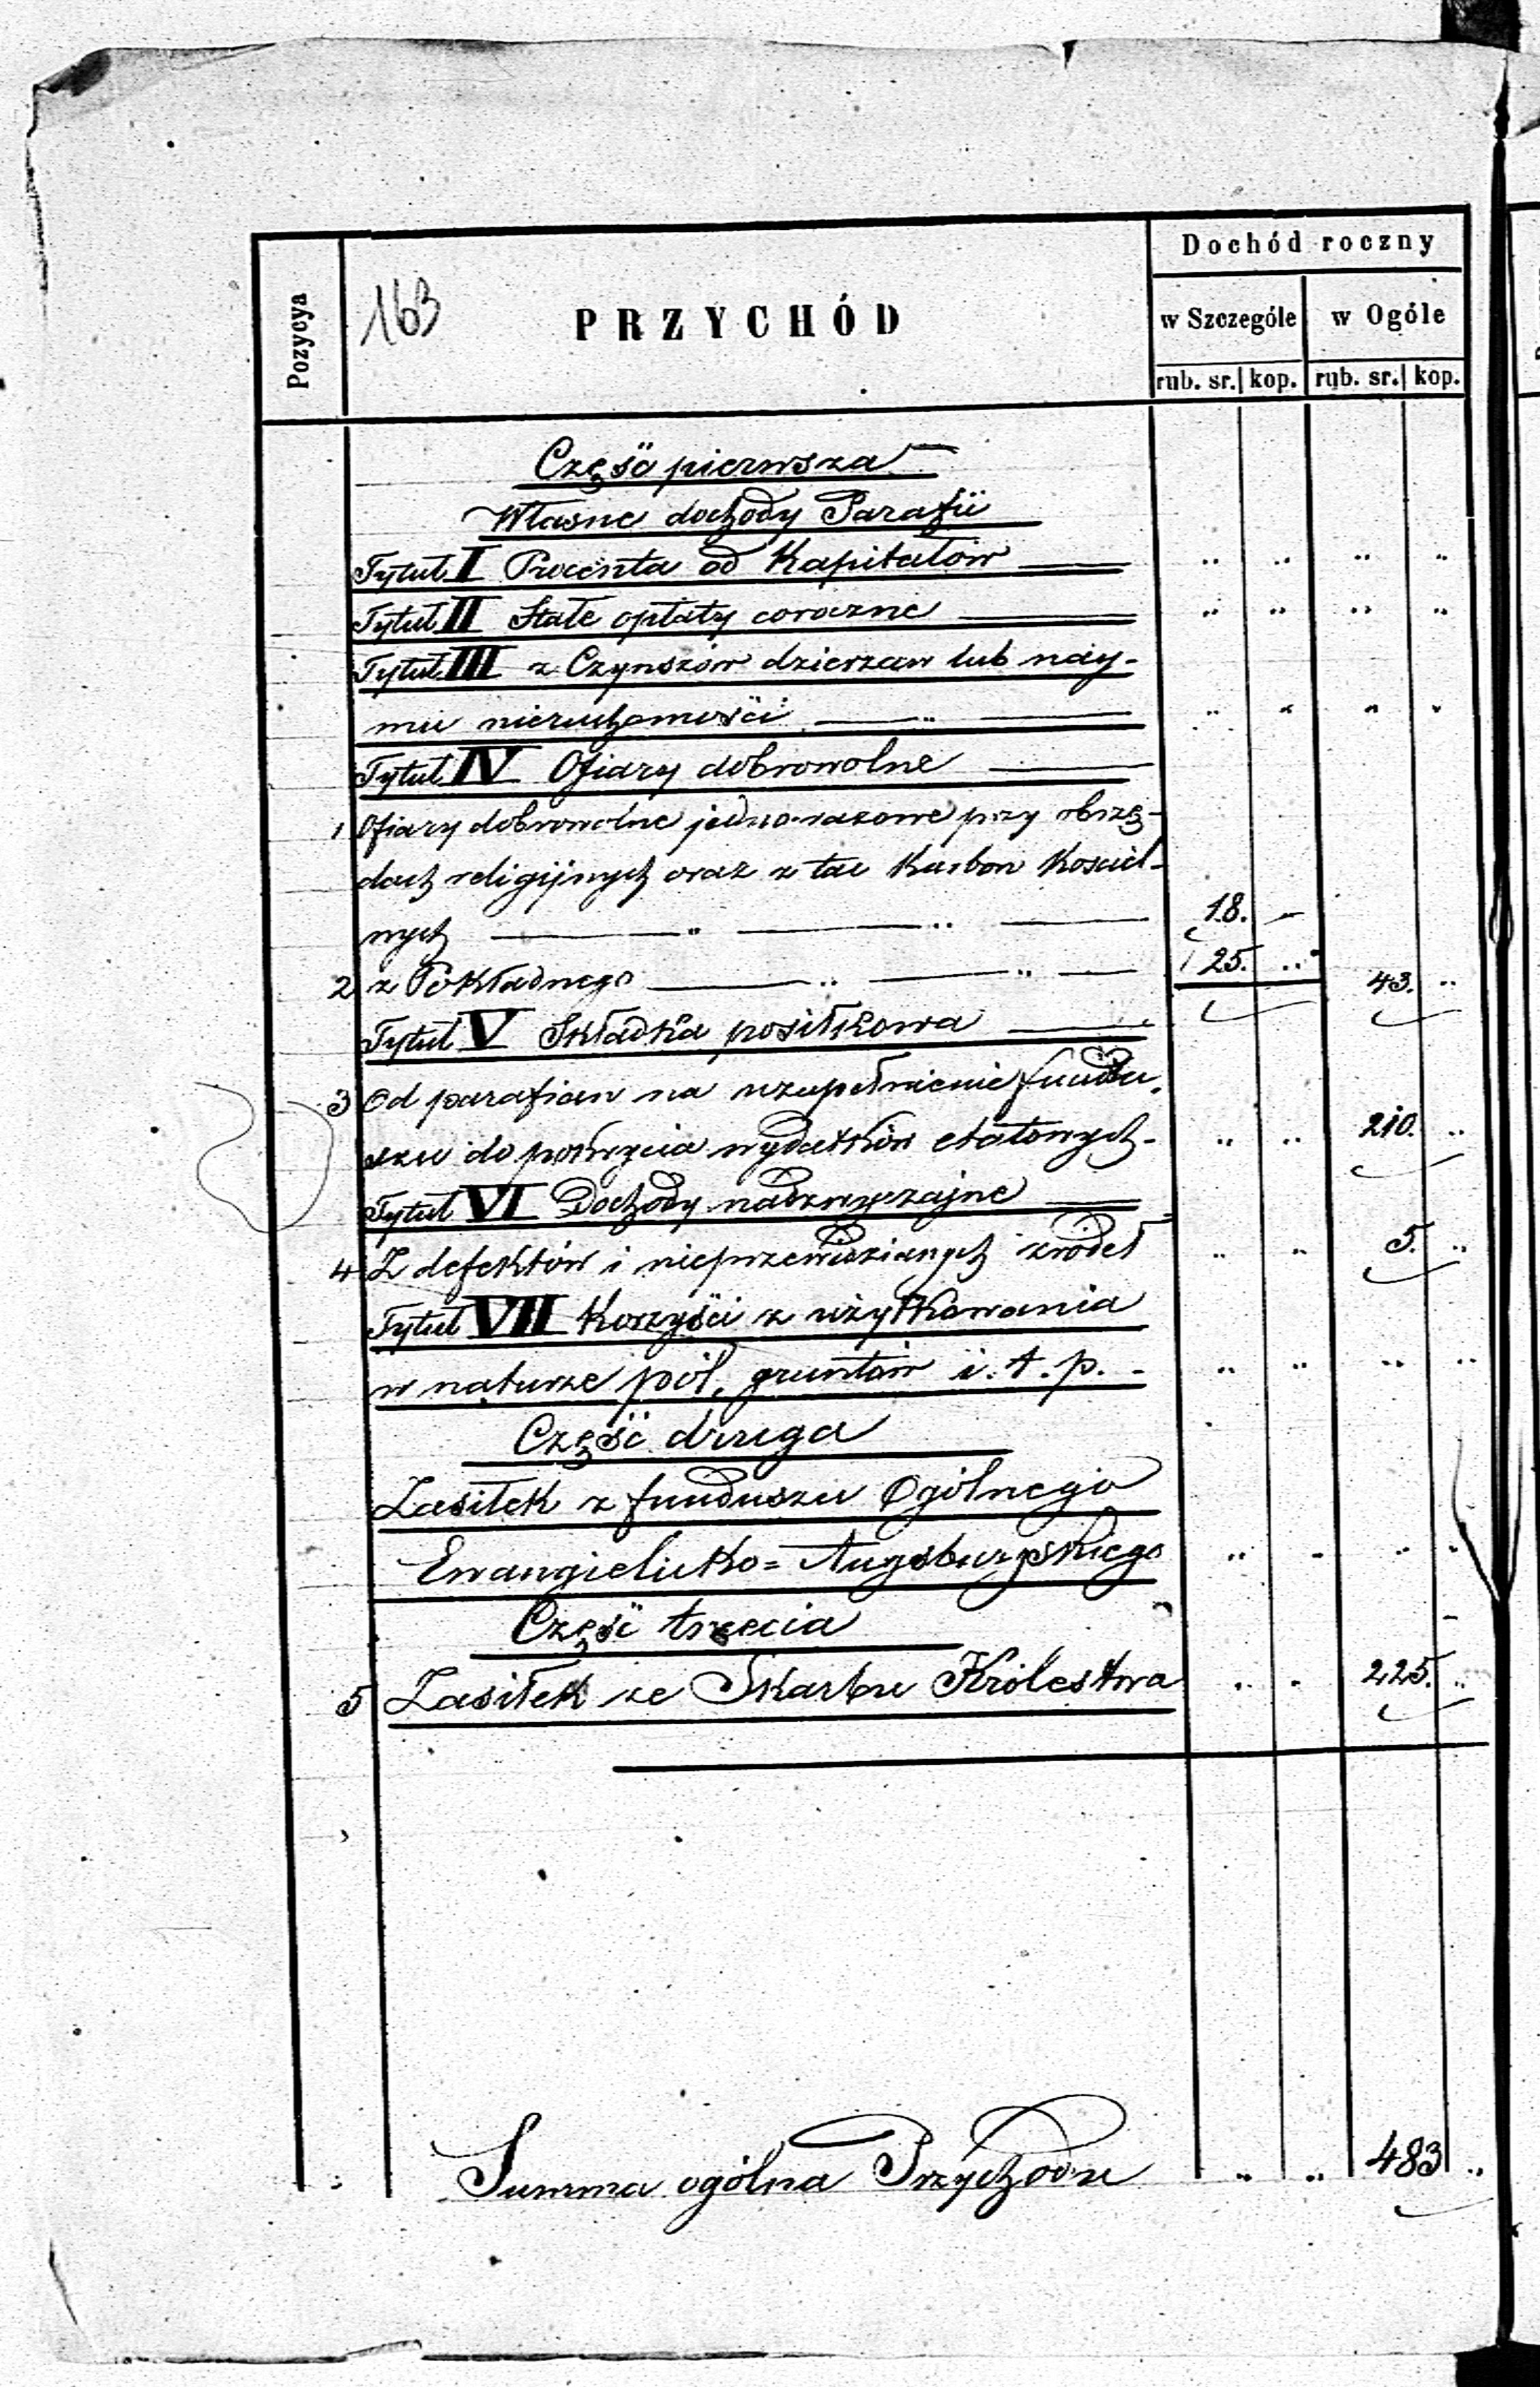 Dochód roczny
Pozycya 163 PRZYCHÓD w Szczególe w Ogóle
rub. sr. kop. rub. sr. kop.
Część pierwsza
Własne dochody Parafii
Tytuł I Procenta od Kapitałów — " " " "
Tytuł II Stałe opłaty coroczne — " " " "
Tytuł III z Czynszów dzierzaw lub nay-
mu nieruchomości — " — " " " "
Tytuł IV Ofiary dobrowolne —
1 Ofiary dobrowolne jedno-razowe przy obrzę-
dach religijnych oraz z tac Karbon Kościel-
nych — " — " — 18. —
2 z Pokładnego — " — " — 25. " 43. "
Tytuł V Składka posiłkowa —
3 Od parafian na uzupełnienie fundu-
szu do pokrycia wydatków etatowych - " " 210. "
Tytuł VI Dochody nadzwyczajne —
4 Z defektów i nieprzewidzianych zrodeł " " 5. "
Tytuł VII Korzyści z użytkowania
w naturze pól, gruntów i. t. p. - " " " "
Część druga
Zasiłek z funduszu Ogólnego
Ewangielicko=Augsburgskiego " " " "
Część trzecia
5 Zasiłek ze Skarbu Królestwa " " 225. "
Summa ogólna Przychodu " " 483 "